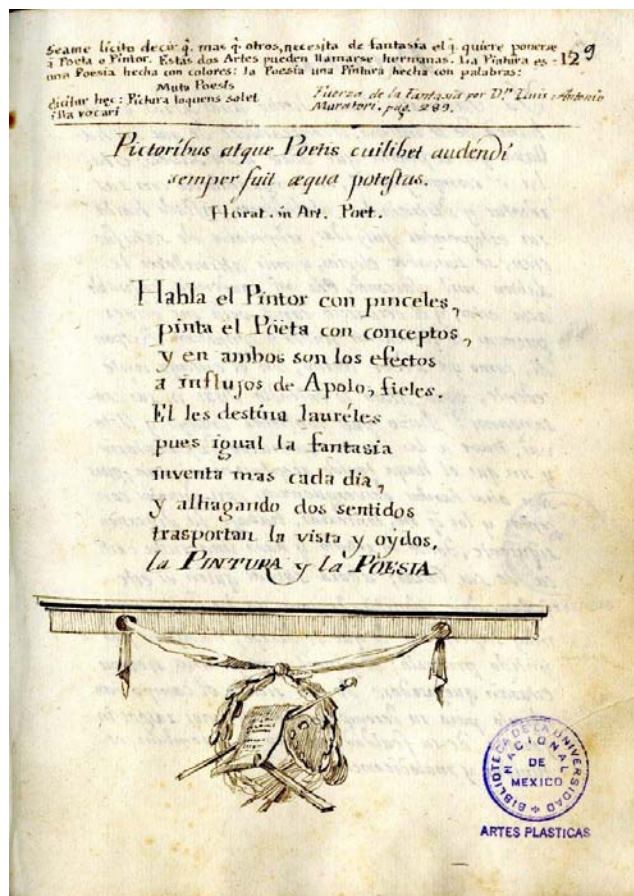 Seame licito decir q. mas q. otros, necesita de fantasia el q. quiere ponerse
à Poeta o Pintor. Estas dos Artes pueden llamarse hermanas. La Pintura es
una Poesia hecha con colores: la Poesia una Pintura hecha con palabras:
129
Muta Poesis
dicitur hęc: Pictura loquens solet
illa vocari
Fuerza de la Fantasia por D.n Luis Antonio
Muratori. pag. 289.
Pictoribus atque Poetis cuilibet audendi
semper fuit æqua potestas.
Horat. in Art. Poet.
Habla el Pintor con pinceles,
pinta el Pöeta con conceptos,
y en ambos son los efectos
a influjos de Apolo, fieles.
El les destina lauréles
pues igual la fantasia
inventa mas cada dia,
y alhagando dos sentidos
trasportan la vista y oydos,
la PINTURA y la POESIA
BIBLIOTECA DE LA UNIVERSIDAD
NACIONAL
DE
MEXICO
ARTES PLASTICAS